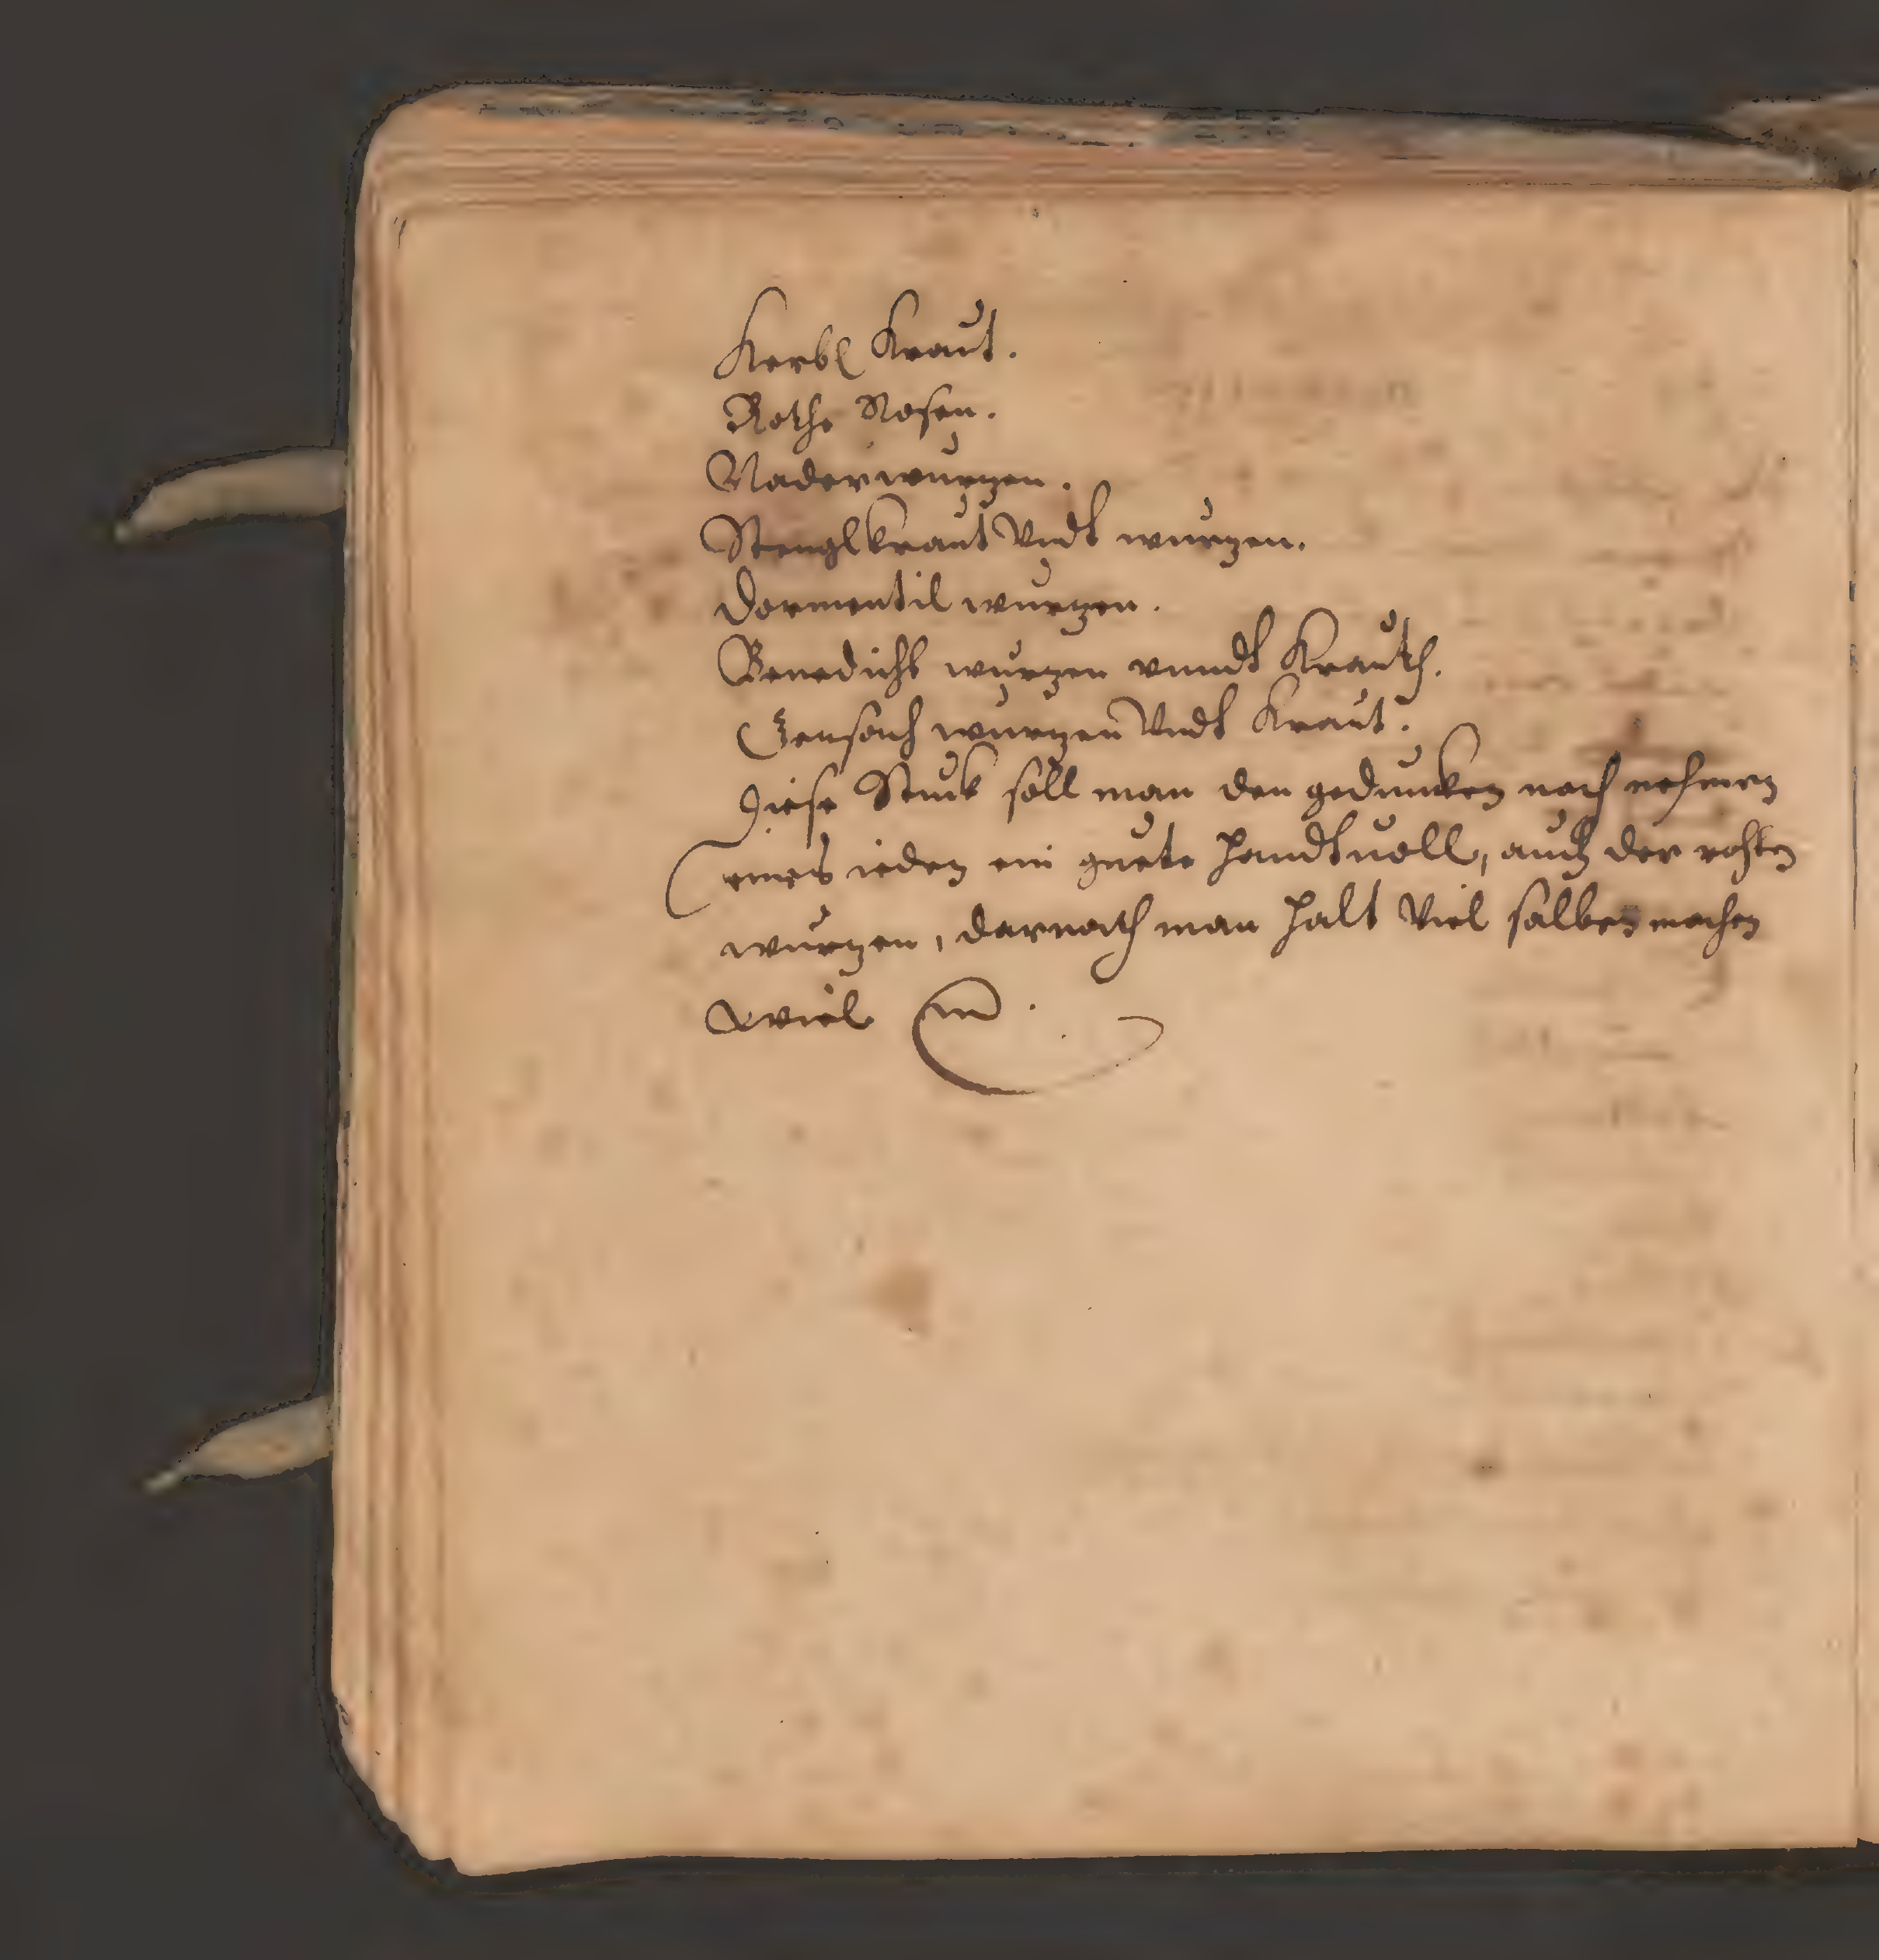 Kerbl Kraut.
Rothe Rosen.
Naderwurzen.
Stenglkraut Vndt wurzen.
Dormentil wurzen.
Benedicht wurzen vnndt Krauth.
Gensach wurzen Vndt Kraut.
Diese Stuck soll man den geduncken nach nehmen
eines ieden ein guete handtuoll, auch der rohten
wurzen, darnach man halt Viel salben machen
will